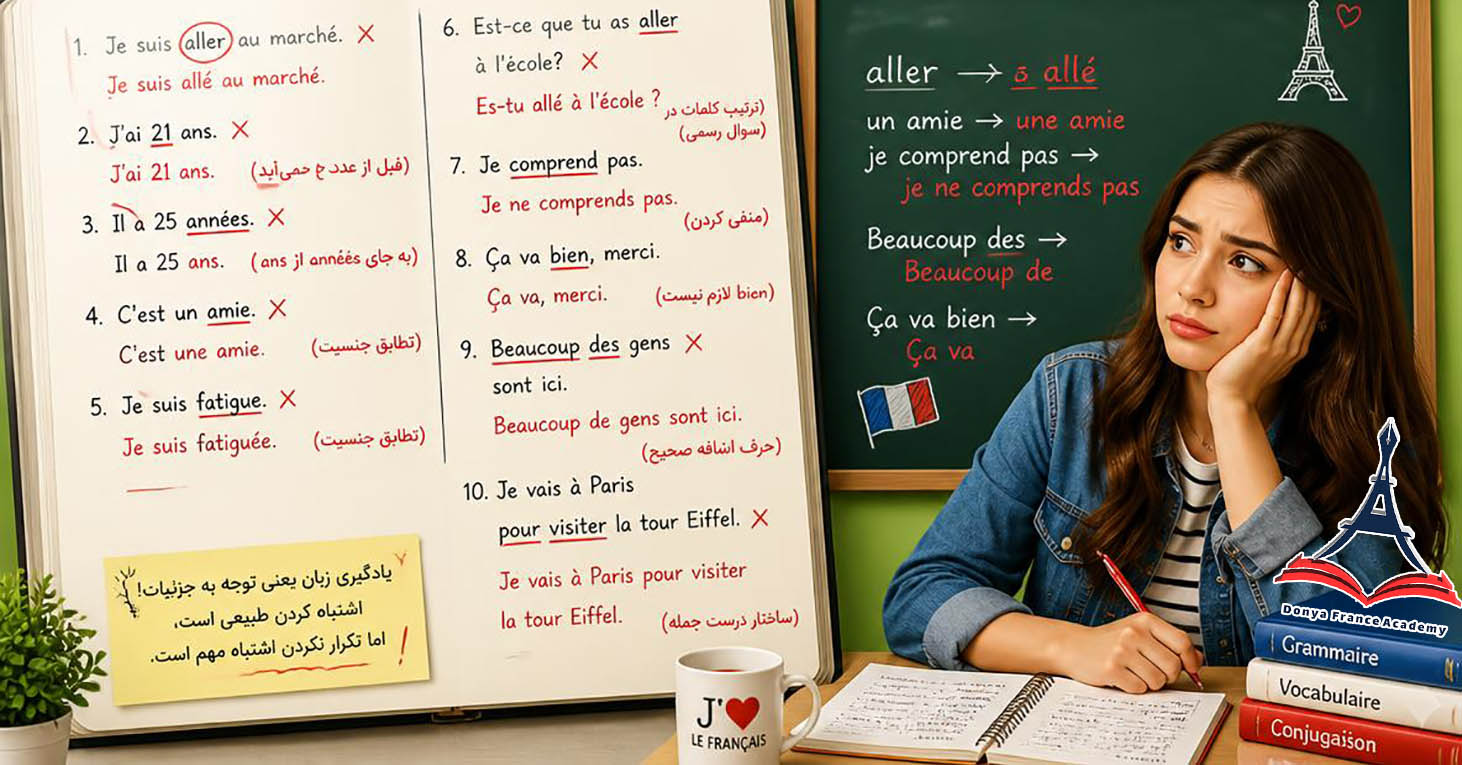 1. Je suis aller au marché. ✗
Je suis allé au marché.
2. J'ai 21 ans. ✗
J'ai 21 ans. (قبل از عدد ح حمی‌آید)
3. Il a 25 années. ✗
Il a 25 ans. (به جای années از ans)
4. C'est un amie. ✗
C'est une amie. (تطابق جنسیت)
5. Je suis fatigue. ✗
Je suis fatiguée. (تطابق جنسیت)
یادگیری زبان یعنی توجه به جزئیات!
اشتباه کردن طبیعی است،
اما تکرار نکردن اشتباه مهم است.
6. Est-ce que tu as aller
à l'école? ✗
Es-tu allé à l'école ? (ترتیب کلمات در
سوال رسمی)
7. Je comprend pas.
Je ne comprends pas.
(منفی کردن)
8. Ça va bien, merci.
Ça va, merci. (bien لازم نیست)
9. Beaucoup des gens ✗
sont ici.
Beaucoup de gens sont ici.
(حرف اضافه صحیح)
10. Je vais à Paris
pour visiter la tour Eiffel. ✗
Je vais à Paris pour visiter
la tour Eiffel. (ساختار درست جمله)
aller → allé
un amie → une amie
je comprend pas →
je ne comprends pas
Beaucoup des →
Beaucoup de
Ça va bien →
Ça va
J'❤
LE FRANÇAIS
Donya France Academy
Grammaire
Vocabulaire
Conjugaison